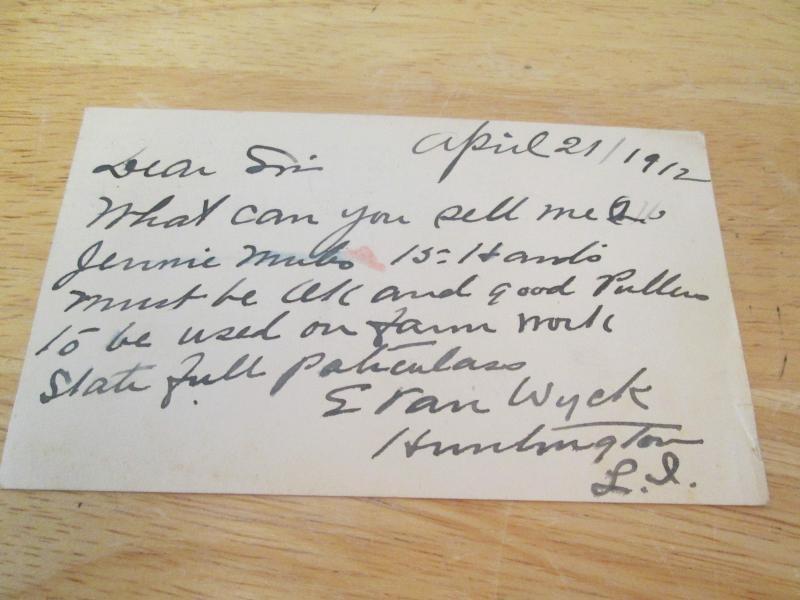 April 21/1912
Dear Sir
What can you sell me
Jennie Mules 15-Hands
must be OK and good Pullers
to be used on farm work
State full paticulars
E Van Wyck
Huntington
L.I.